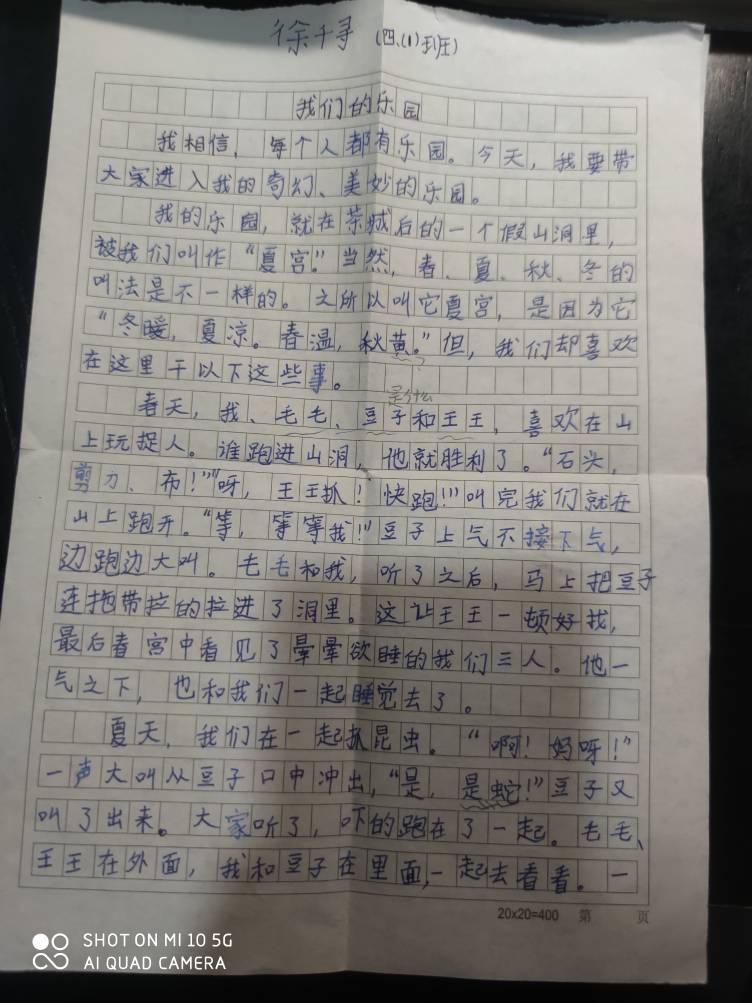 徐千寻 (四.(1)班)
我们的乐园
我相信，每个人都有乐园。今天，我要带
大家进入我的奇幻、美妙的乐园。
我的乐园，就在茶城后的一个假山洞里，
被我们叫作“夏宫”。当然，春、夏、秋、冬的
叫法是不一样的。之所以叫它夏宫，是因为它
“冬暖，夏凉。春温，秋黄。”但，我们却喜欢
?
在这里干以下这些事。
是什么
春天，我、毛毛、豆子和王王，喜欢在山
上玩捉人。谁跑进山洞，他就胜利了。“石头，
剪刀、布！”“呀，王王抓！快跑！”叫完我们就在
山上跑开。“等，等等我！”豆子上气不接下气，
边跑边大叫。毛毛和我，听了之后，马上把豆子
连拖带拉的拉进了洞里。这让王王一顿好找，
最后春宫中看见了晕晕欲睡的我们三人。他一
气之下，也和我们一起睡觉去了。
夏天，我们在一起抓昆虫。“啊！妈呀！”
一声大叫从豆子口中冲出，“是，是蛇！”豆子又
叫了出来。大家听了，吓的跑在了一起。毛毛、
王王在外面，我和豆子在里面，一起去看看。一
20x20=400 第 页
SHOT ON MI 10 5G
AI QUAD CAMERA